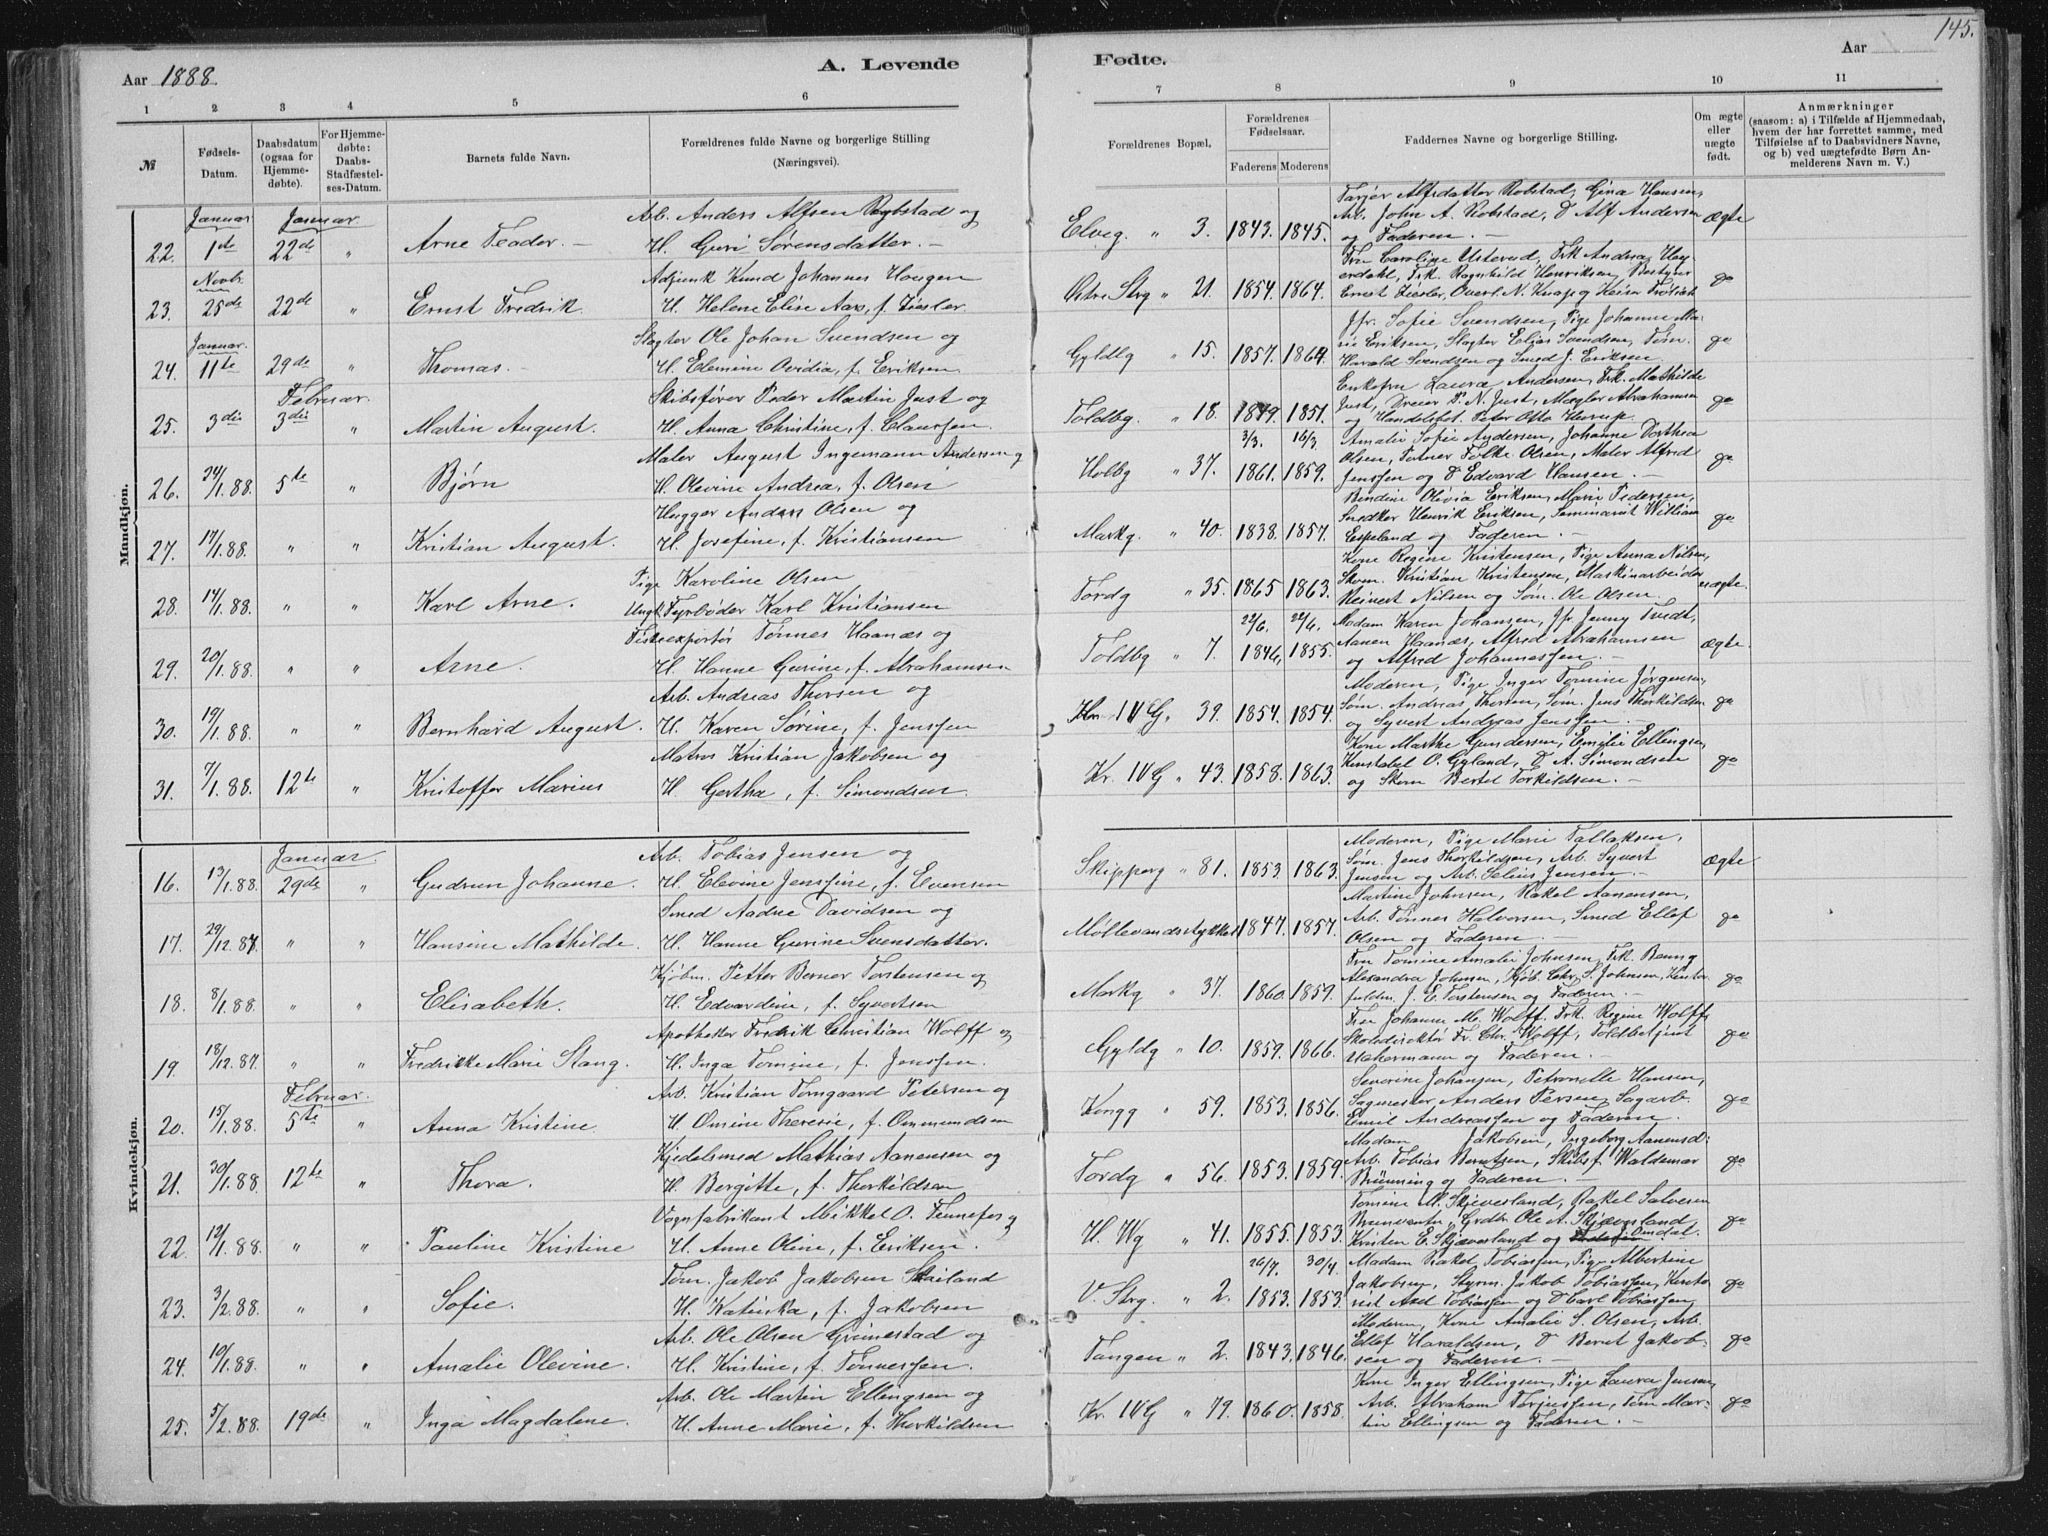 145.
Aar 1888.
A. Levende Fødte.
Aar
1 2 3 4 5 6 7 8 9 10 11
№
Fødsels-Datum.
Daabsdatum (ogsaa for Hjemmedøbte).
For Hjemmedøbte: Daabs-Stadfæstelses-Datum.
Barnets fulde Navn.
Forældrenes fulde Navne og borgerlige Stilling (Næringsvei).
Forældrenes Bopæl.
Forældrenes Fødselsaar.
Faderens Moderens
Faddernes Navne og borgerlige Stilling.
Om ægte eller uægte født.
Anmærkninger
(saasom: a) i Tilfælde af Hjemmedaab, hvem der har forrettet samme, med Tilføielse af to Daabsvidners Navne, og b) ved uægtefødte Børn Anmelderens Navn m. V.)
Mandkjøn.
Januar Januar Arb. Anders Alfsen Robstad og Tarjer Alfsdatter Robstad, Gina Hansen,
22. 1ste 22de " Arne Teodor. — H. Guri Sørensdatter. — Elveg. " 3. 1843. 1845. Arb. John A. Robstad, D Alf Andersen og Faderen. — ægte
Novbr. Adjunk Knud Johannes Hougen Fru Caroline Ustevud, Frk Andrea Heyerdahl, Frk. Ragnhild Henriksen, Bestyrer
23. 25de 22de " Ernst Fredrik. H. Helene Elise Aas, f. Ziesler Østre Strg " 21. 1854. 1864. Ernst Ziesler, Overl. N. Knap og do
Januar. Slagter Ole Johan Svendsen og Jfr. Sofie Svendsen, Pige Johanne Marie Eriksen, Slagter Elias Svendsen, Tøm.
24. 11te 29de " Thomas. — H. Edemine Ovidia, f. Eriksen Gyldbg " 15. 1857. 1864. Harald Svendsen og Smed J. Eriksen do
Februar. Skibsfører Peder Martin Just og Enkefru Laura Andersen, Frk. Mathilde
25. 3die 3die " Martin August. H. Anna Christine, f. Claussen. Toldbg. " 18. 1849. 1851. Just, Dreier P. N. Just, Mægler Abrahamsen og Handelsbet. Peter Otto do
Maler August Ingemann Andersen og 3/3. 16/3 Amalie Sofie Andersen, Johanne Dorthea
26. 24/1.88. 5te " Bjørn H. Olevine Andrea, f. Olsen Holbg " 37. 1861. 1859. Olsen, Folke Olsen, Maler Alfred Jenssen og D Edvard Hansen. — do
Hugger Anders Olsen og Bendine Olivia Eriksen, Marie Pedersen,
27. 17/1.88. " " Kristian August. H. Josefine, f. Kristiansen Markg. " 40. 1838. 1857. Snedker Henrik Eriksen, Seminarist William Espeland og Faderen. — do
Pige Karoline Olsen Kone Regine Kristensen, Pige Anna Nilsen,
28. 14/1.88. " " Karl Arne. Ungk. Fyrbøder Karl Kristiansen Tordg " 35. 1865 1863. Skom. Kristian Kristensen, Maskinarbeider Reinert Nilsen og Søm. Ole Olsen. uægte.
Fiskeexportør Tønnes Haanæs og 22/6. 22/6. Madam Karen Johansen, Jfr. Jenny Tvedt,
29. 20/1.88. " " Arne. H. Hanne Gurine, f. Abrahamsen Toldbg " 7. 1846, 1855. Aanen Haanæs, Alfred Abrahamsen og Alfred Johannessen. — ægte
Arb. Andreas Thorsen og Moderen, Pige Inger Tomine Jørgensen,
30. 19/1.88. " " Bernhard August. H. Karen Sørine, f. Jenssen Kr. IV G. " 39. 1854. 1854. Søm. Andreas Thorsen, Søm. Jens Thorkildsen og Syvert Andreas Jenssen. — do
Matros Kristian Jakobsen og Kone Marthe Gundersen, Emilie Ellingsen,
31. 7/1.88. 12te " Kristoffer Marius H. Gertha, f. Simondsen. Kr. IV G " 43. 1858. 1863. Konstabel O. Gyland, D A. Simondsen og Skom Bertel Torkildsen. — do
Kvindekjøn.
Januar. Arb. Tobias Jensen og Moderen, Pige Marie Tallaksen,
16. 13/1.88. 29de " Gudrun Johanne. H. Elevine Jenssine, f. Evensen Skipperg " 81. 1853 1863. Søm. Jens Thorkildsen, Arb. Syvert Jensen og Arb. Selius Jensen. — ægte
Smed Aadne Davidsen og Martine Johnsen, Rakel Aanensen,
17. 29/12.87. " " Hansine Mathilde. H. Hanne Gurine Svensdatter. Møllevandstykket 1847. 1857. Arb. Tønnes Halvorsen, Smed Ellef Olsen og Faderen. — do
Kjøbm. Petter Berner Torstensen og Fru Tomine Amalie Johnsen, Frk. Benny
18. 8/1.88. " " Elisabeth. H. Edvardine, f. Syvertsen Markg " 37. 1860. 1859. Alexandra Johnsen, Kjøb. Chr. S. Johnsen, J. E. Torstensen og Faderen. — do
Apotheker Fredrik Christian Wolff og Fru Johanne M. Wolff. Frk. Regine Wolff
19. 18/12.87. " " Fredrikke Marie Stang. H. Inga Tomine, f. Jenssen. Gyldg " 10. 1859. 1866. Skoledirektør Fr. Chr. Wolff, Toldbetjent Uckermann og Faderen. do
Februar. Arb. Kristian Torngaard Petersen og Severine Johansen, Petronelle Hansen,
20. 15/1.88. 5te " Anna Kristine. H. Omine Theresie, f. Ommundsen Kongg " 59. 1853. 1856. Sagmester Anders Persen, Sagarb. Emil Andreassen og Faderen. do
Kjedelsmed Mathias Aanensen og Madam Jakobsen, Ingeborg Aanensd:
21. 30/1.88. 12te " Thora. H. Bergitte, f. Thorkildsen Tordg " 56. 1853. 1859. Arb. Tobias Berntsen, Skibsf. Waldemar Brünning og Faderen. — do
Vognfabrikant Mikkel O. Fennefos og Tomine M. Skjeverland, Rakel Salvesen
22. 12/1.88. " " Pauline Kristine H. Anne Oline, f. Eriksen. H. Wg " 41. 1855. 1853. Grdbr. Ole A. Skjæverland Kristen E. Skjæverland og Omdal. do
Tøm. Jakob Jakobsen Skeiland 26/7. 30/4. Madam Rakel Tobiassen, Pige Albertine
23. 3/2.88. " " Sofie. H. Katinka, f. Jakobsen V. Strg. " 2. 1853. 1853. Jakobsen, Styrm. Jakob Tobiassen, Axel Tobiassen og D Carl Tobiassen. do
Arb. Ole Olsen Grimestad og Moderen, Kone Amalie S. Olsen, Arb.
24. 19/1.88. " " Amalie Olevine. H. Kristine, f. Tønnessen. Tangen " 2. 1843. 1846. Ellef Haraldsen, D Bernt Jakobsen og Faderen. — do
Arb. Ole Martin Ellingsen og Kone Inger Ellingsen, Pige Laura Jensen,
25. 5/2.88. 19de " Inga Magdalene. H. Anne Marie, f. Thorkildsen Kr. IV G " 79. 1860. 1858. Arb. Abraham Torjussen, Tøm Martin Ellingsen og Faderen. — do